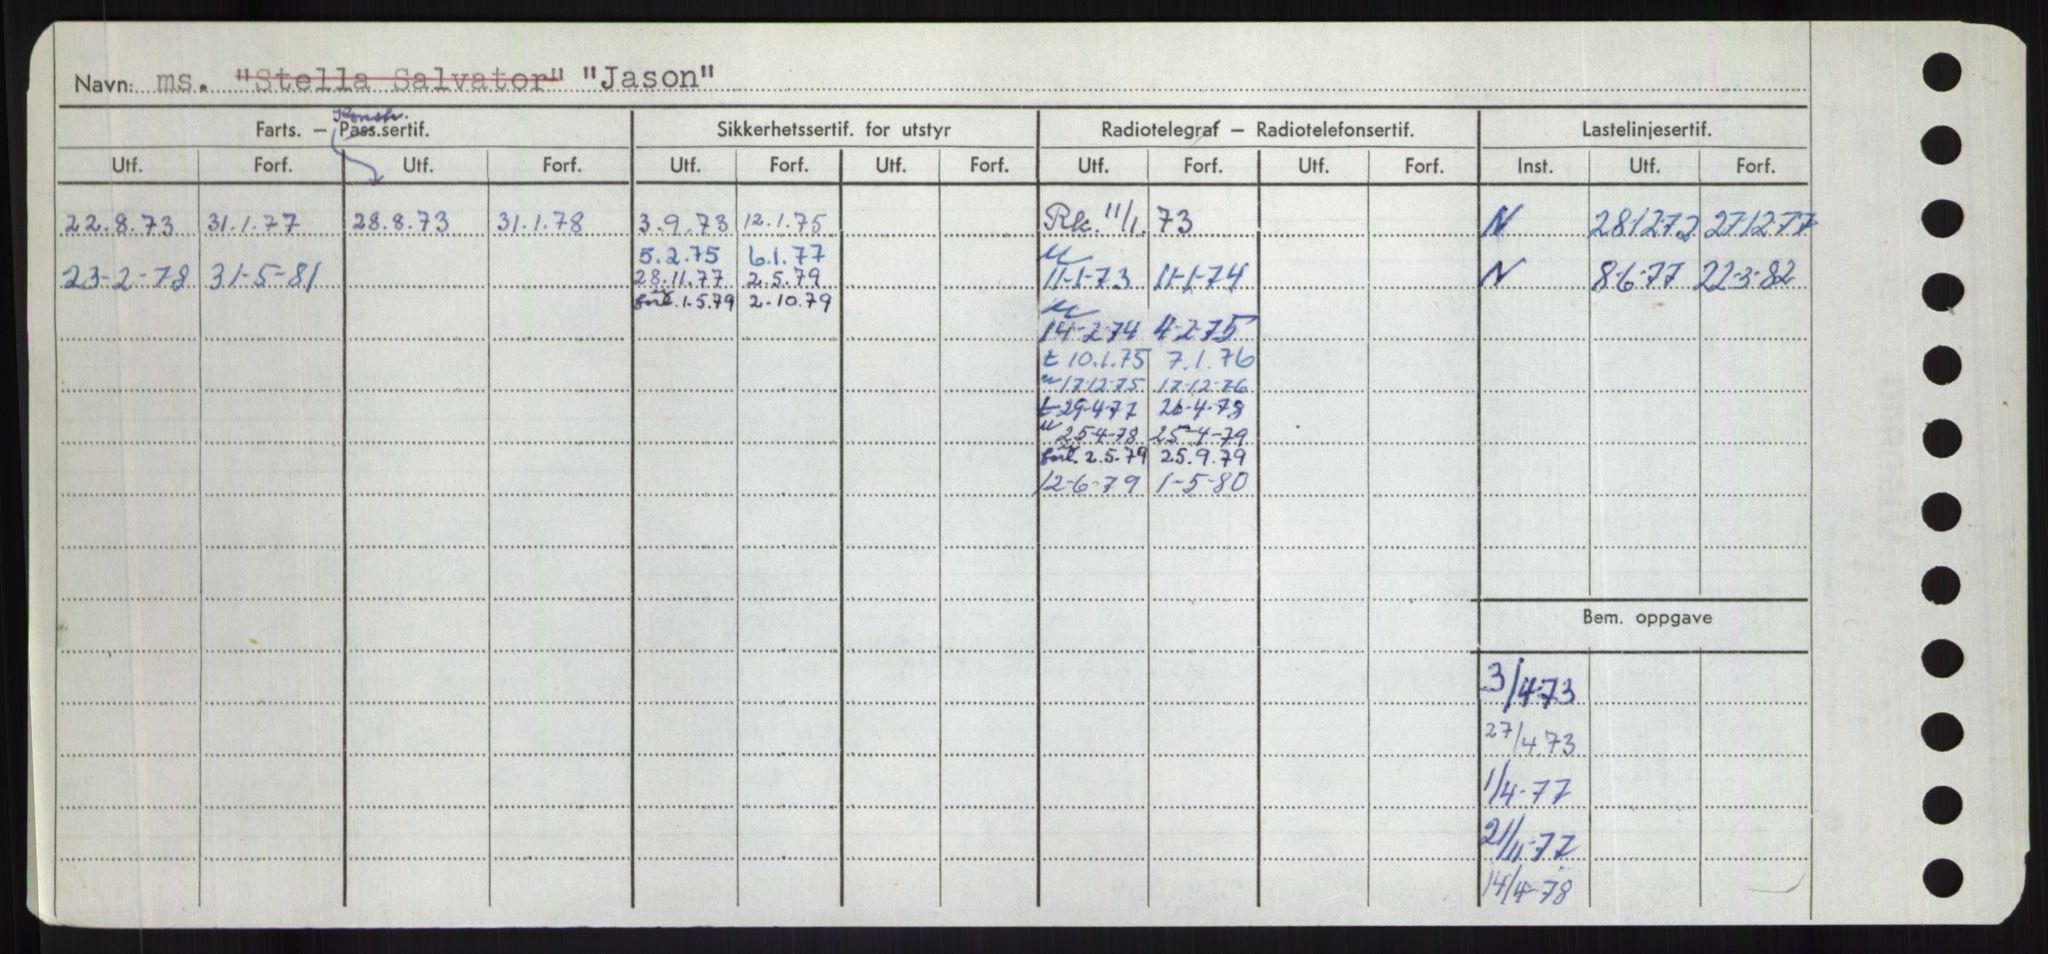 Navn: ms. "Stella Salvator" "Jason"
Konstr.
Farts. — Pass.sertif. Sikkerhetssertif. for utstyr Radiotelegraf — Radiotelefonsertif. Lastelinjesertif.
Utf. Forf. Utf. Forf. Utf. Forf. Utf. Forf. Utf. Forf. Utf. Forf. Inst. Utf. Forf.
22.8.73 31.1.77 28.8.73 31.1.78 3.9.73 12.1.75 Rk. 11/1. 73 N 28.12.72 27.12.77
5.2.75 6.1.77
23-2-78 31-5-81 28.11.77 2.5.79 11-1-73 11-1-74 N 8-6-77 22-3-82
forl. 1.5.79 2.10.79
14-2-74 4-2-75
t 10.1.75 7.1.76
" 17-12-75 17-12-76
t 29-4-77 26-4-78
" 25-4-78 25-4-79
forl. 2.5.79 25.9.79
12-6-79 1-5-80
Bem. oppgave
3/4-73
27/4 73
1/4-77
21/11-77
14/4-78